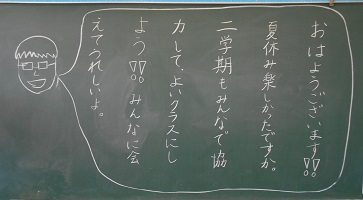 おはようございます!!
夏休み楽しかったですか。
二学期もみんなで協
力して、よいクラスにし
よう!!みんなに会
えてうれしいよ。